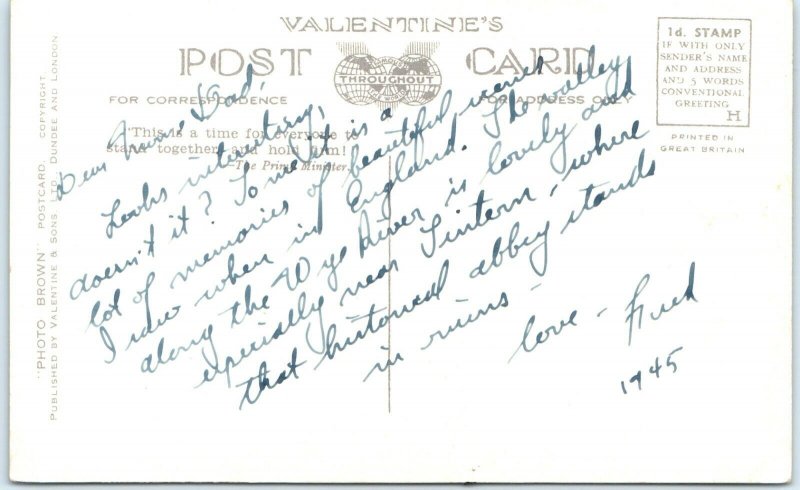 VALENTINE'S
POST CARD
THROUGHOUT
FOR CORRESPONDENCE
FOR ADDRESS ONLY
"This is a time for everyone to
stand together, and hold firm!"
—The Prime Minister.
1d. STAMP
IF WITH ONLY
SENDER'S NAME
AND ADDRESS
AND 5 WORDS
CONVENTIONAL
GREETING
H
PRINTED IN
GREAT BRITAIN
"PHOTO BROWN" POSTCARD. COPYRIGHT.
PUBLISHED BY VALENTINE & SONS, LTD. DUNDEE AND LONDON.
Dear Mum & Dad,
Looks interesting,
doesn't it? To me it is a
lot of memories of beautiful
I saw when in England. The valley
along the Wye River is lovely and
especially near Tintern, where
that historical abbey stands
in ruins -
love - Fred
1945